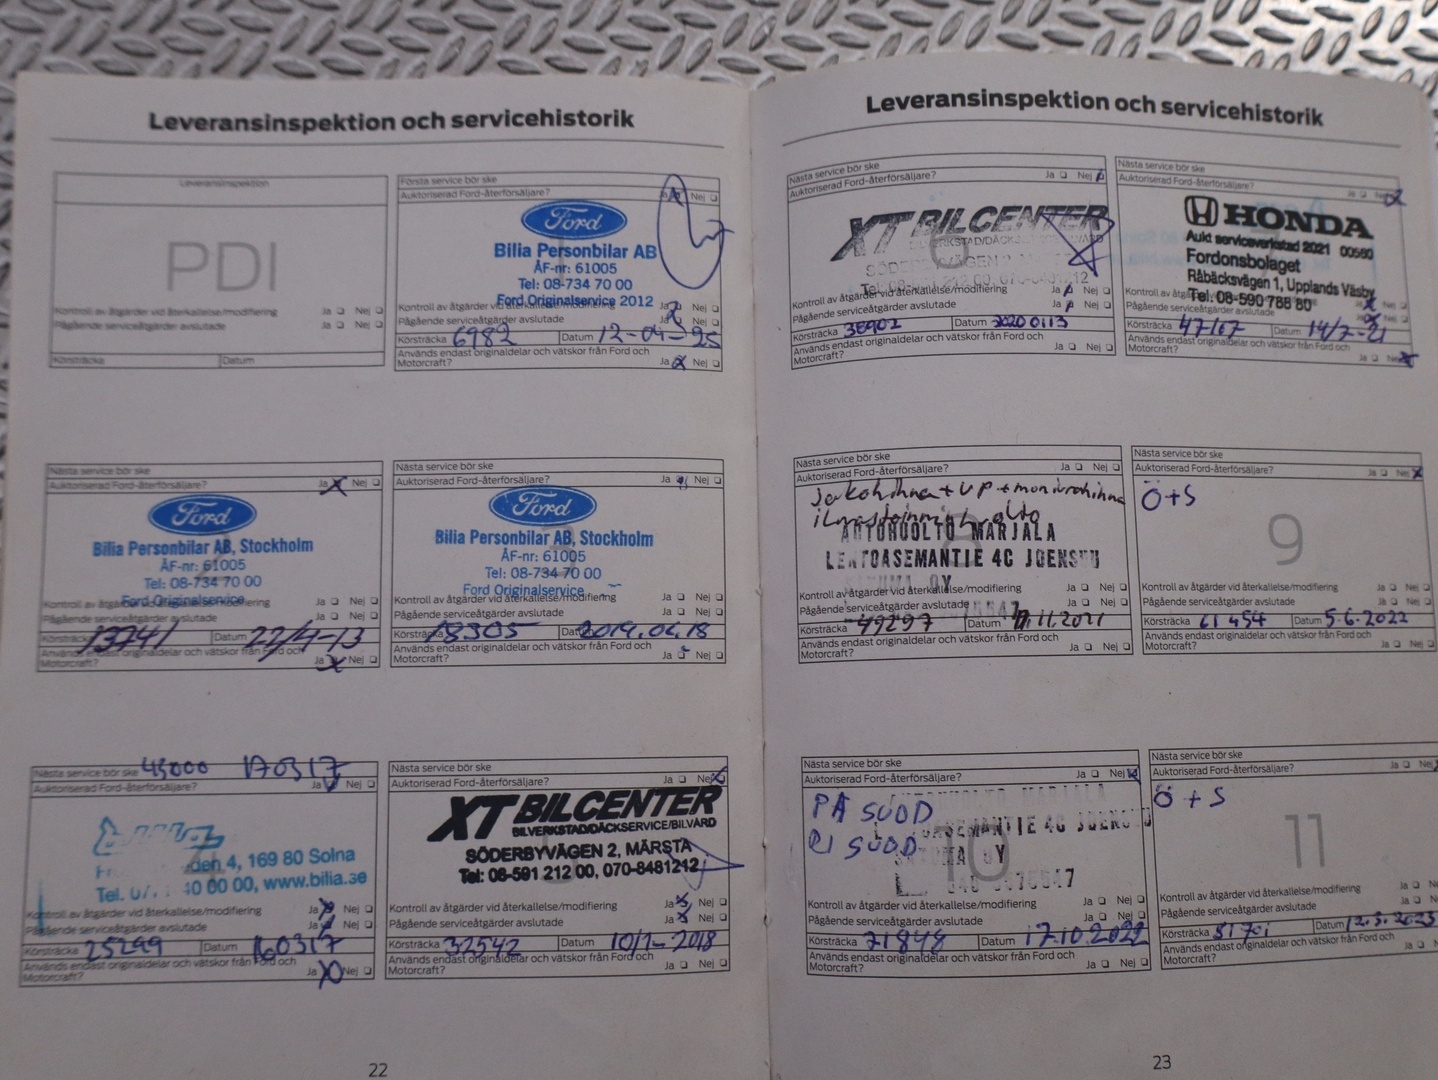 Leveransinspektion och servicehistorik
Leveransinspektion
PDI
Kontroll av åtgärder vid återkallelse/modifiering Ja Nej
Pågående serviceåtgärder avslutade Ja Nej
Körsträcka Datum
Första service bör ske
Auktoriserad Ford-återförsäljare? Ja Nej
Ford
Bilia Personbilar AB
ÅF-nr: 61005
Tel: 08-734 70 00
Ford Originalservice 2012
Kontroll av åtgärder vid återkallelse/modifiering Ja Nej
Pågående serviceåtgärder avslutade Ja Nej
Körsträcka 6982 Datum 12-04-25
Används endast originaldelar och vätskor från Ford och
Motorcraft? Ja
Nästa service bör ske
Auktoriserad Ford-återförsäljare? Ja Nej
Ford
Bilia Personbilar AB, Stockholm
ÅF-nr: 61005
Tel: 08-734 70 00
Ford Originalservice
Kontroll av åtgärder vid återkallelse/modifiering Ja Nej
Pågående serviceåtgärder avslutade Ja Nej
Körsträcka 13241 Datum 22/4-13
Används endast originaldelar och vätskor från Ford och
Motorcraft? Ja Nej
Nästa service bör ske
Auktoriserad Ford-återförsäljare? Ja Nej
Ford
Bilia Personbilar AB, Stockholm
ÅF-nr: 61005
Tel: 08-734 70 00
Ford Originalservice
Kontroll av åtgärder vid återkallelse/modifiering Ja Nej
Pågående serviceåtgärder avslutade Ja Nej
Körsträcka 18305 Datum 2014.06.18
Används endast originaldelar och vätskor från Ford och
Motorcraft? Ja Nej
Nästa service bör ske 45000 170317
Auktoriserad Ford-återförsäljare? Ja Nej
den 4, 169 80 Solna
Tel. 40 00 00, www.bilia.se
Kontroll av åtgärder vid återkallelse/modifiering Ja Nej
Pågående serviceåtgärder avslutade Ja Nej
Körsträcka 25299 Datum 160317
Används endast originaldelar och vätskor från Ford och
Motorcraft? Ja Nej
Nästa service bör ske
Auktoriserad Ford-återförsäljare? Ja Nej
XT BILCENTER
BILVERKSTAD/DÄCKSERVICE/BILVÅRD
SÖDERBYVÄGEN 2, MÄRSTA
Tel: 08-591 212 00, 070-8481212
Kontroll av åtgärder vid återkallelse/modifiering Ja Nej
Pågående serviceåtgärder avslutade Ja Nej
Körsträcka 32542 Datum 10/1-2018
Används endast originaldelar och vätskor från Ford och
Motorcraft? Ja Nej
22
Leveransinspektion och servicehistorik
Nästa service bör ske
Auktoriserad Ford-återförsäljare? Ja Nej
XT BILCENTER
6
SÖDERBYVÄGEN 2
Kontroll av åtgärder vid återkallelse/modifiering Ja Nej
Pågående serviceåtgärder avslutade Ja Nej
Körsträcka 38902 Datum 20200113
Används endast originaldelar och vätskor från Ford och
Motorcraft? Ja Nej
Nästa service bör ske
Auktoriserad Ford-återförsäljare? Ja
HONDA
Aukt serviceverkstad 2021 00560
Fordonsbolaget
Råbäcksvägen 1, Upplands Väsby
Tel: 08-590 788 80
Körsträcka 47167 Datum 14/7-21
Används endast originaldelar och vätskor från Ford och
Motorcraft? Ja
Nästa service bör ske
Auktoriserad Ford-återförsäljare? Ja Nej
AUTOHUOLTO MARJALA
LENTOASEMANTIE 4C JOENSUU
Kontroll av åtgärder vid återkallelse/modifiering Ja Nej
Pågående serviceåtgärder avslutade Ja Nej
Körsträcka 49297 Datum 11.2021
Används endast originaldelar och vätskor från Ford och
Motorcraft? Ja Nej
Nästa service bör ske
Auktoriserad Ford-återförsäljare? Ja Nej
Ö+S
9
Kontroll av åtgärder vid återkallelse/modifiering Ja Nej
Pågående serviceåtgärder avslutade Ja Nej
Körsträcka 61454 Datum 5.6.2022
Används endast originaldelar och vätskor från Ford och
Motorcraft? Ja Nej
Nästa service bör ske
Auktoriserad Ford-återförsäljare? Ja Nej
PÅ SUOD
RI SUOD
10
Kontroll av åtgärder vid återkallelse/modifiering Ja Nej
Pågående serviceåtgärder avslutade Ja Nej
Körsträcka 71848 Datum 17.10.2022
Används endast originaldelar och vätskor från Ford och
Motorcraft? Ja Nej
Nästa service bör ske
Auktoriserad Ford-återförsäljare? Ja
Ö + S
11
Kontroll av åtgärder vid återkallelse/modifiering Ja
Pågående serviceåtgärder avslutade Ja
Körsträcka 81701 Datum 12.3.2023
Används endast originaldelar och vätskor från Ford och
Motorcraft? Ja
23